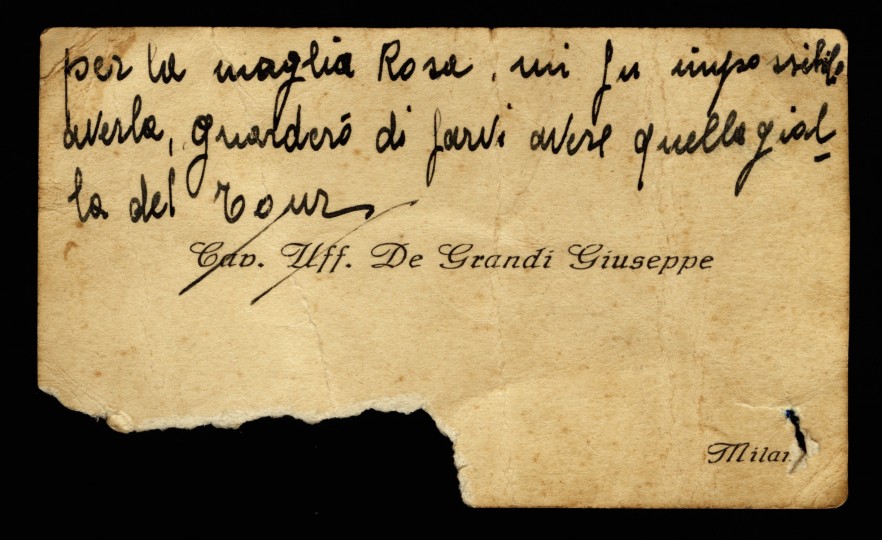 per la maglia Rosa, mi fu impossibile
averla, guarderó di farvi avere quella gial-
la del Tour
Cav. Uff. De Grandi Giuseppe
Milan